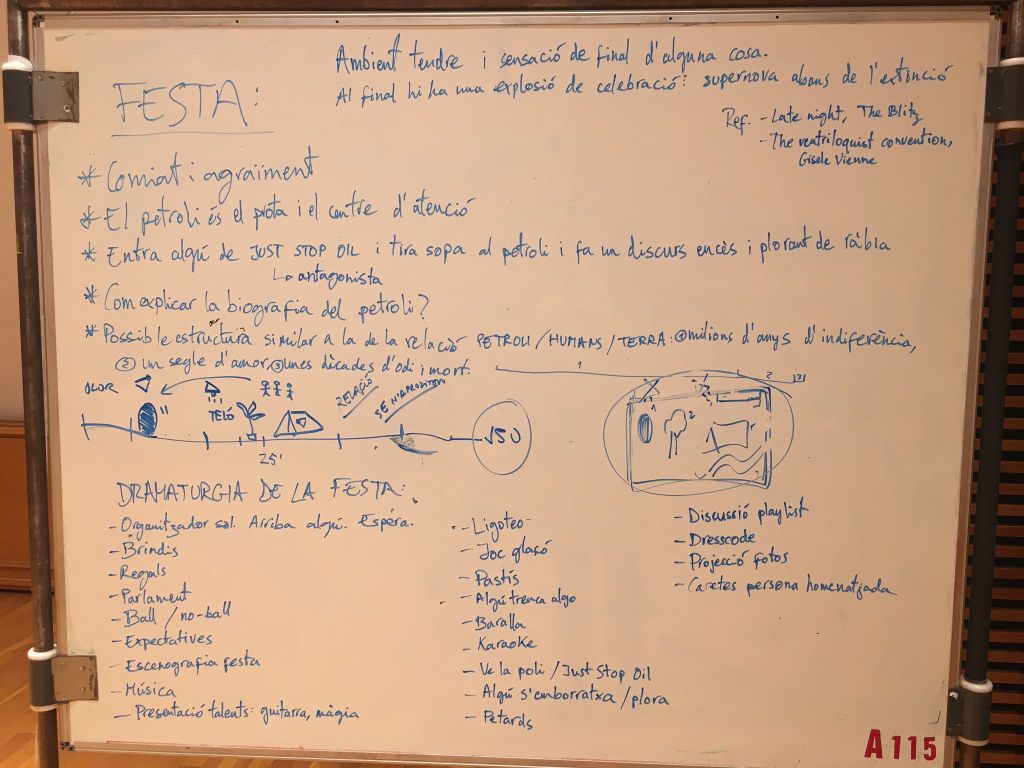 Ambient tendre i sensació de final d'alguna cosa.
Al final hi ha una explosió de celebració: supernova abans de l'extinció
FESTA:
Ref. - Late night, The Blitz
- The ventriloquist convention,
Gisele Vienne
* Comiat i agraïment
* El petroli és el prota i el centre d'atenció
* Entra algú de JUST STOP OIL i tira sopa al petroli i fa un discurs encès i plorant de ràbia
↳ antagonista
* Com explicar la biografia del petroli?
* Possible estructura similar a la de la relació PETROLI/HUMANS/TERRA: ① milions d'anys d'indiferència,
② un segle d'amor, ③ unes dècades d'odi i mort.
OLOR
TELÓ
RELACIÓ
SE N'APROFITEN
25'
√50
1
2
3
1
2
DRAMATURGIA DE LA FESTA:
- Organitzador sol. Arriba algú. Espera.
- Brindis
- Regals
- Parlament
- Ball / no-ball
- Expectatives
- Escenografia festa
- Música
- Presentació talents: guitarra, màgia
- Ligoteo
- Joc glaçó
- Pastís
- Algú trenca algo
- Baralla
- Karaoke
- Ve la poli / Just Stop Oil
- Algú s'emborratxa / plora
- Petards
- Discussió playlist
- Dresscode
- Projecció fotos
- Caretes persona homenatjada
A 115